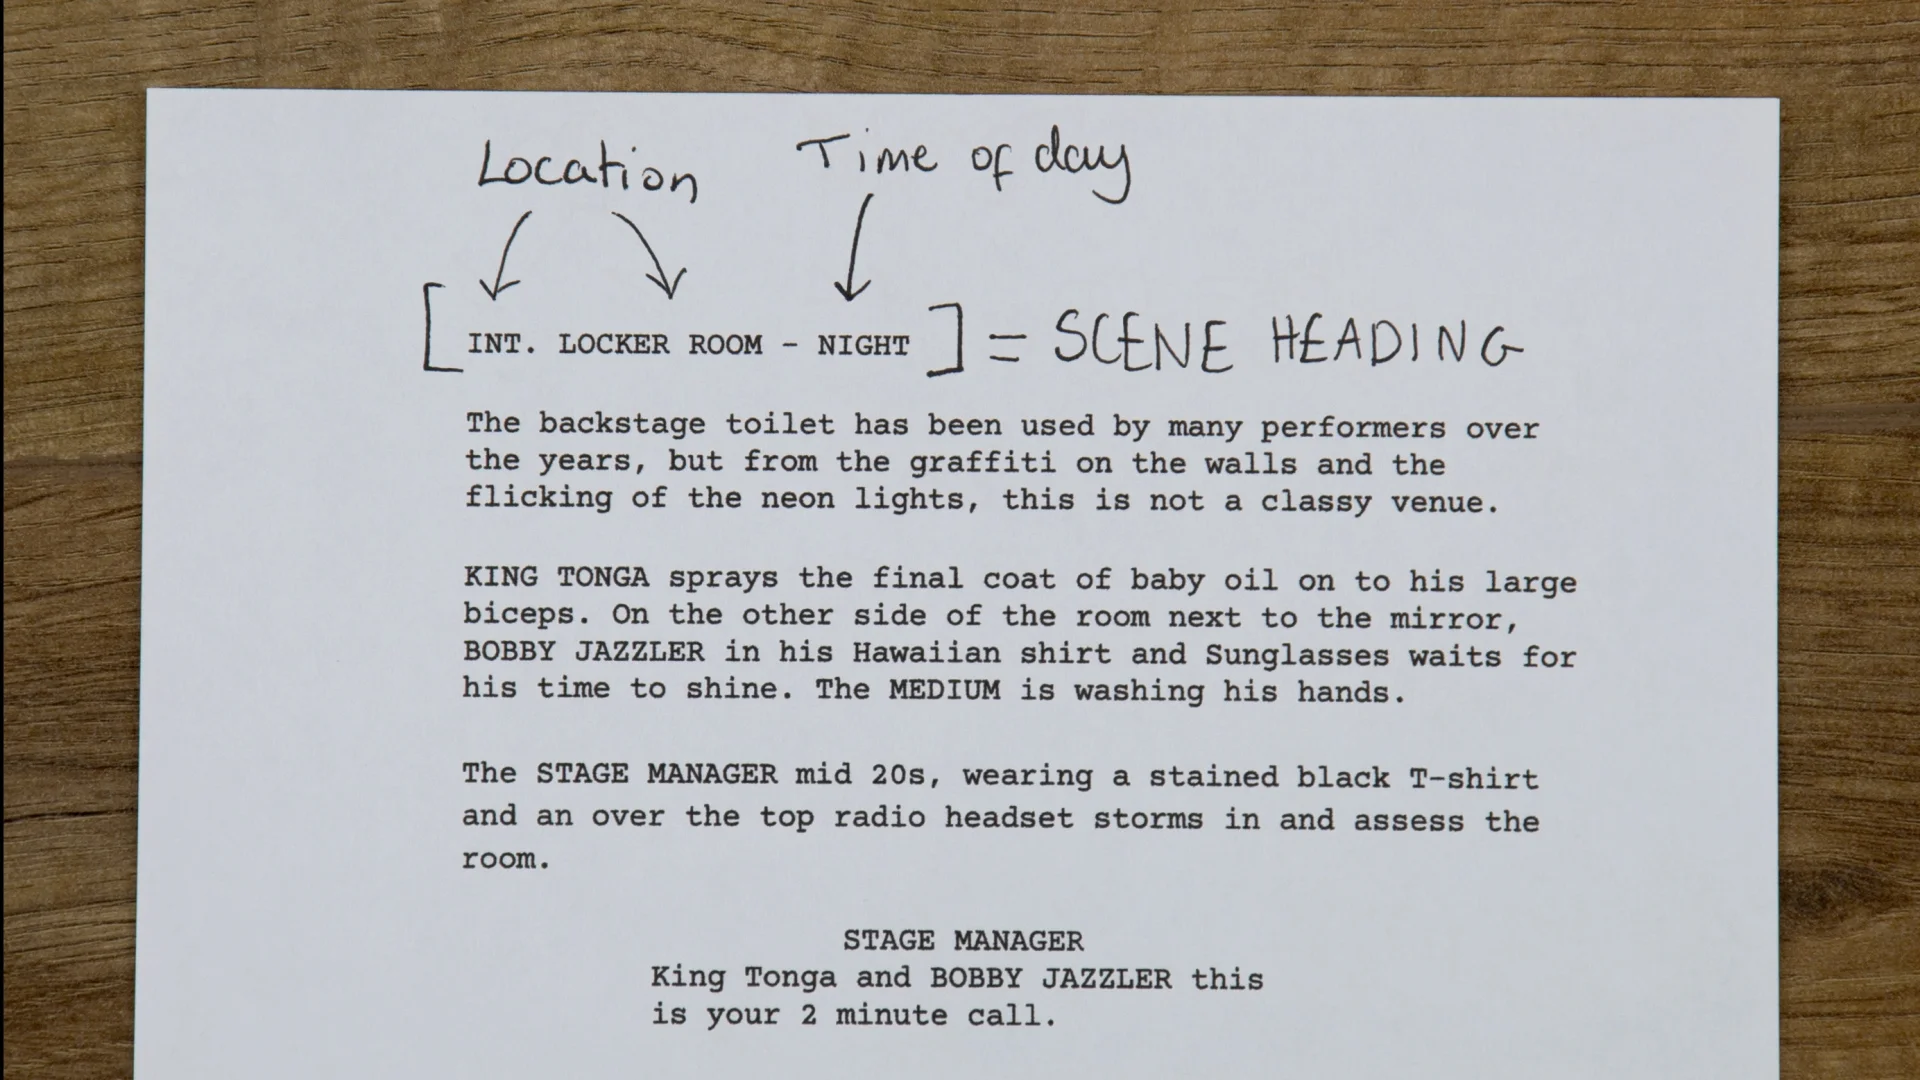 Location Time of day
[INT. LOCKER ROOM - NIGHT] = SCENE HEADING
The backstage toilet has been used by many performers over
the years, but from the graffiti on the walls and the
flicking of the neon lights, this is not a classy venue.
KING TONGA sprays the final coat of baby oil on to his large
biceps. On the other side of the room next to the mirror,
BOBBY JAZZLER in his Hawaiian shirt and Sunglasses waits for
his time to shine. The MEDIUM is washing his hands.
The STAGE MANAGER mid 20s, wearing a stained black T-shirt
and an over the top radio headset storms in and assess the
room.
STAGE MANAGER
King Tonga and BOBBY JAZZLER this
is your 2 minute call.